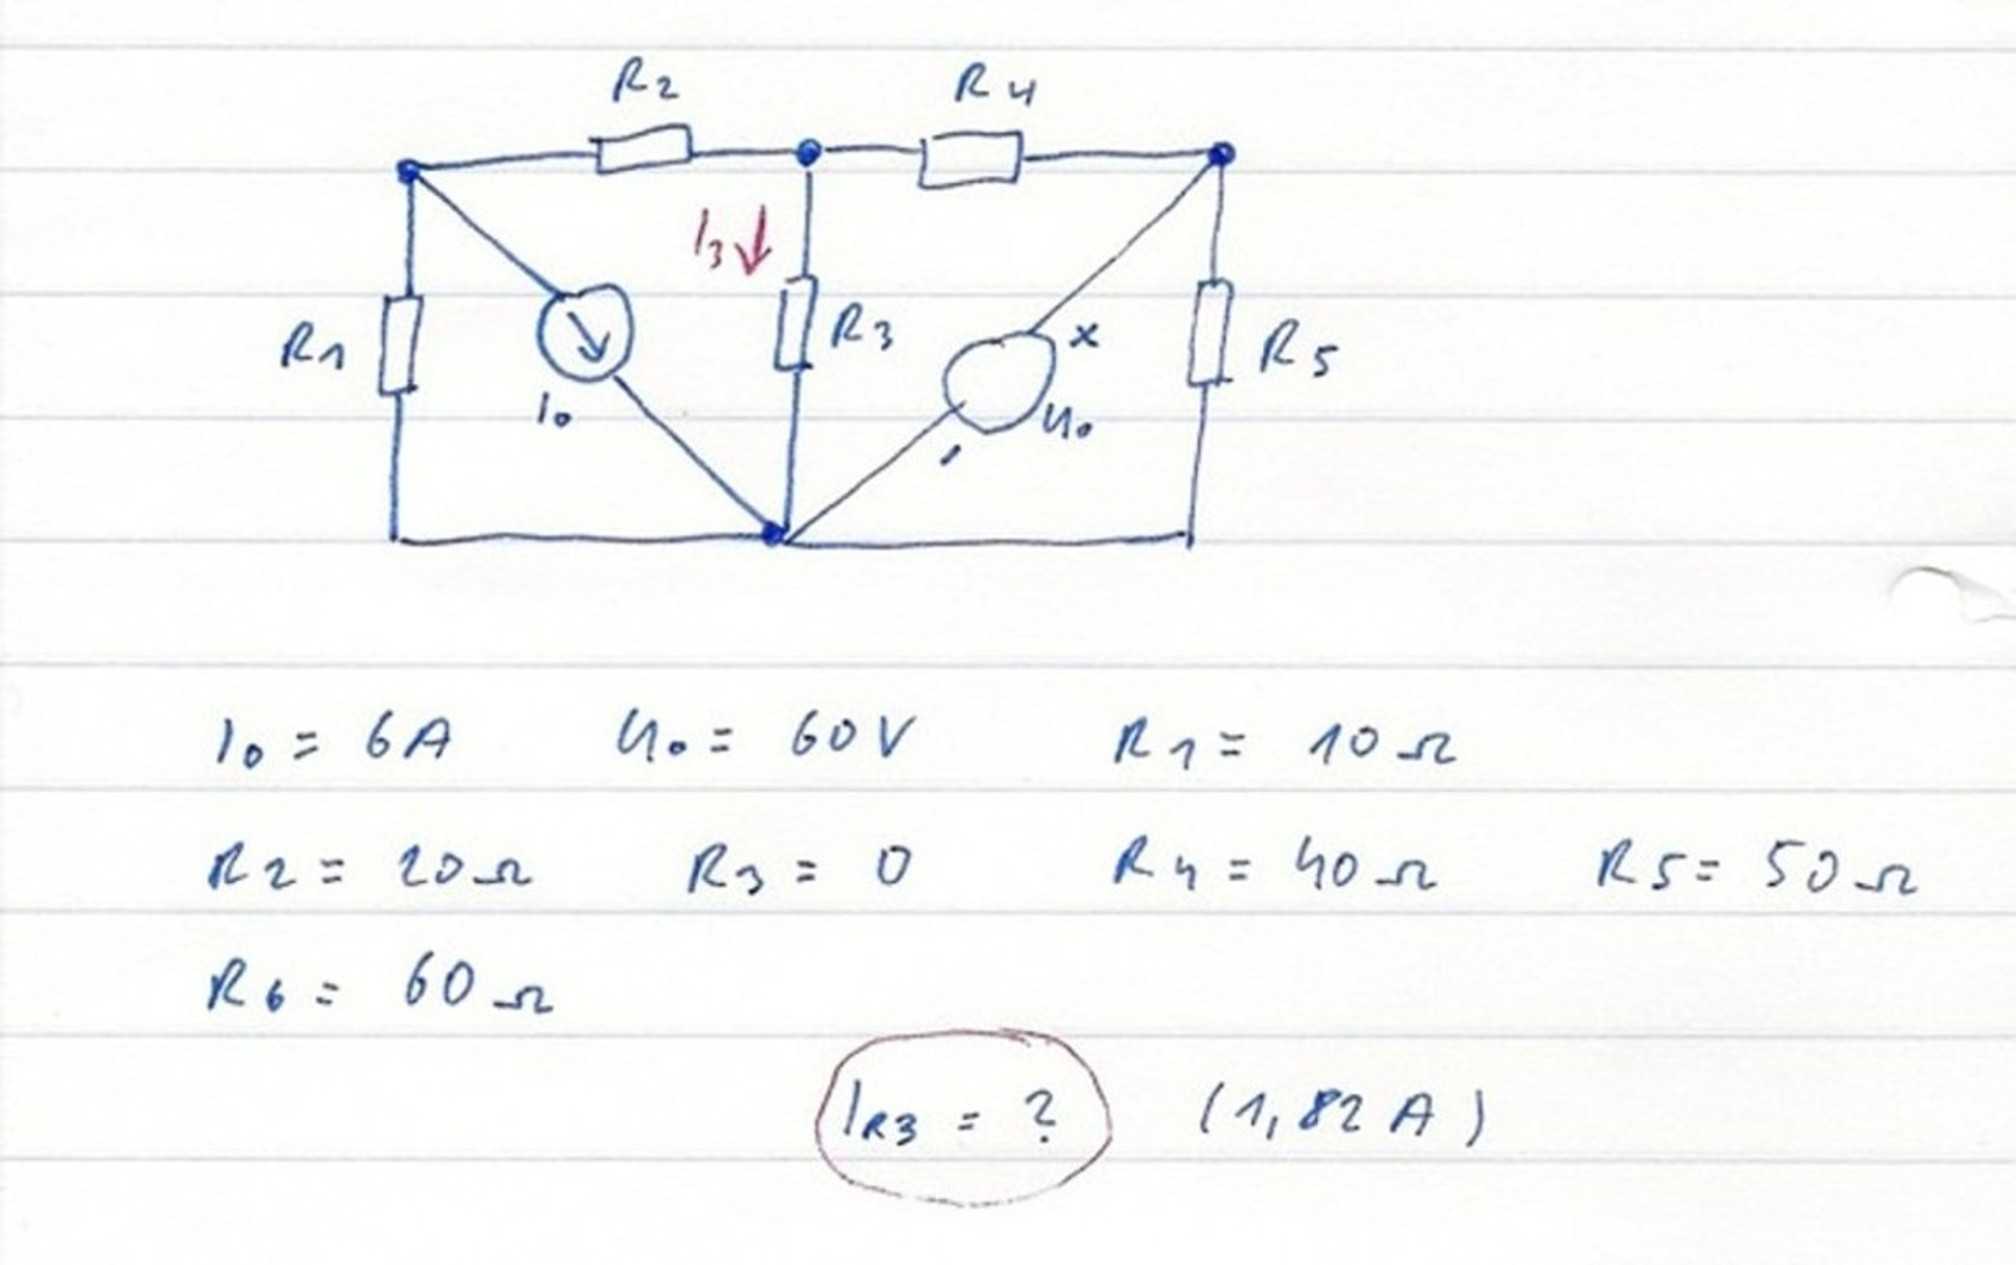 R2 R4
I3
R1 R3 x R5
I0 U0
I0 = 6A U0 = 60V R1 = 10Ω
R2 = 20Ω R3 = 0 R4 = 40Ω R5 = 50Ω
R6 = 60Ω
IR3 = ? (1,82 A)